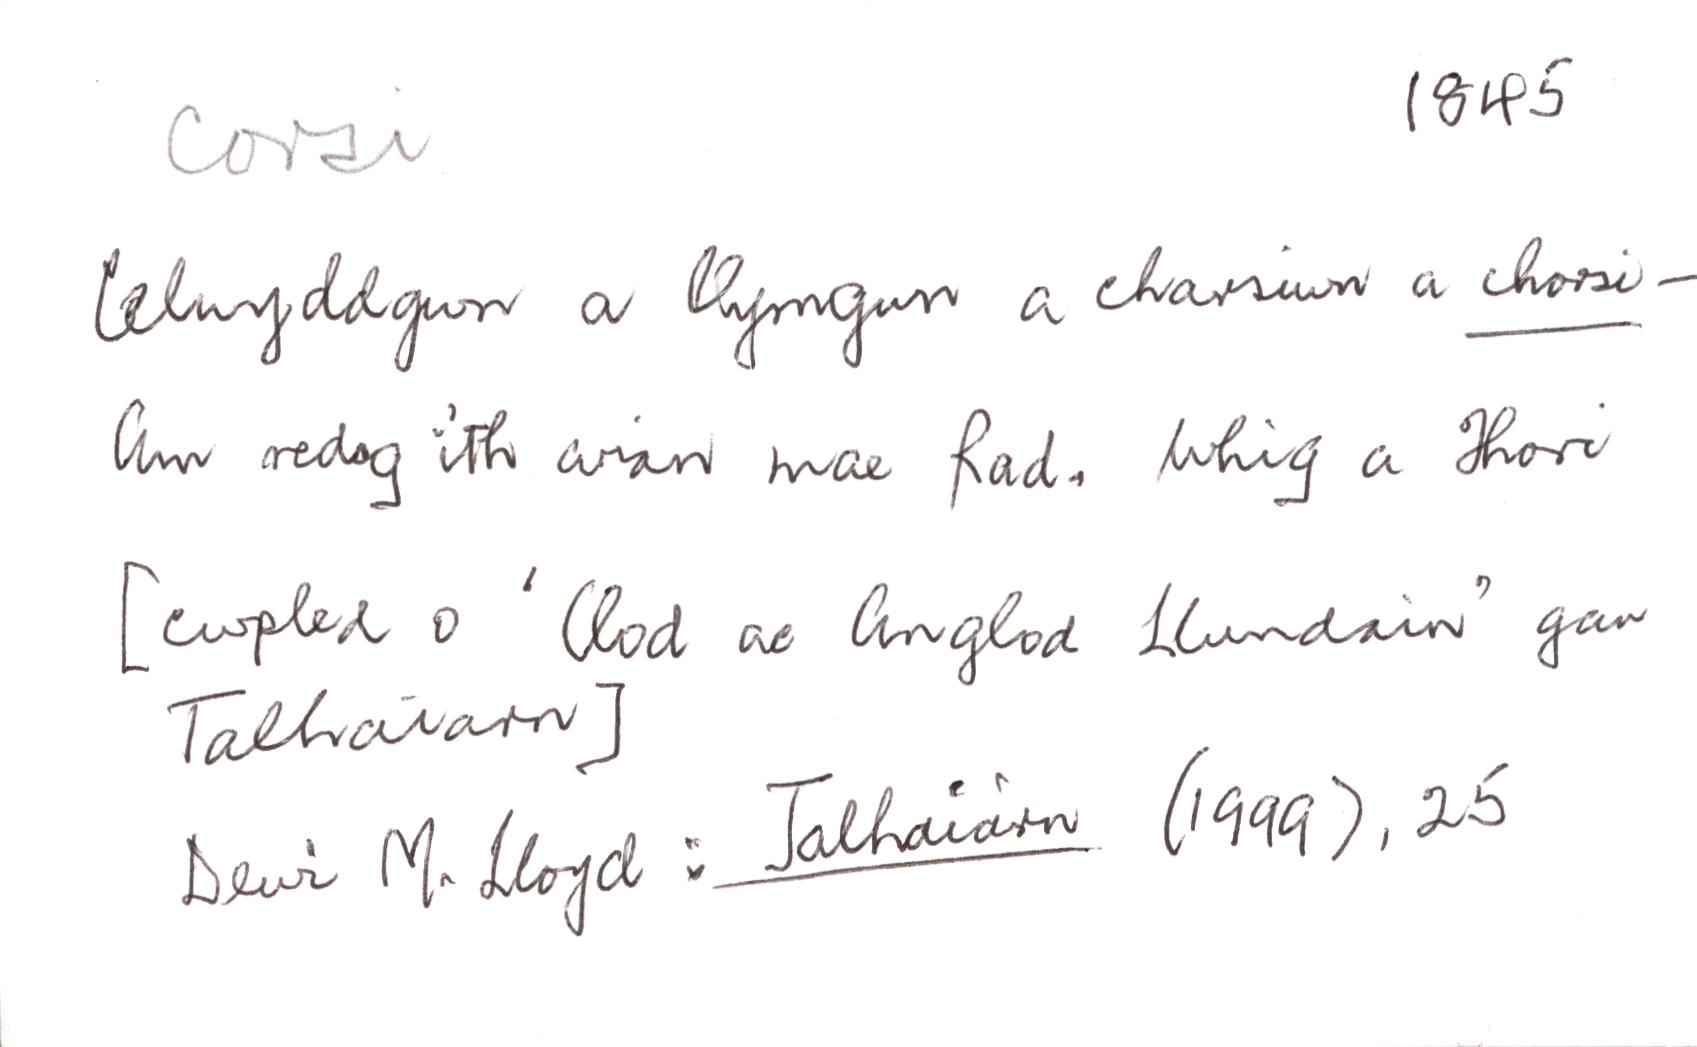 Corsi 1845
Celwyddgwn a llymgwn a charsiwn a chorsi –
Am redeg i'th arian mae Rad. Whig a Thori
[cwpled o 'Clod ac Anglod Llundain' gan
Talhaiarn]
Dewi M. Lloyd : Talhaiarn (1999), 25